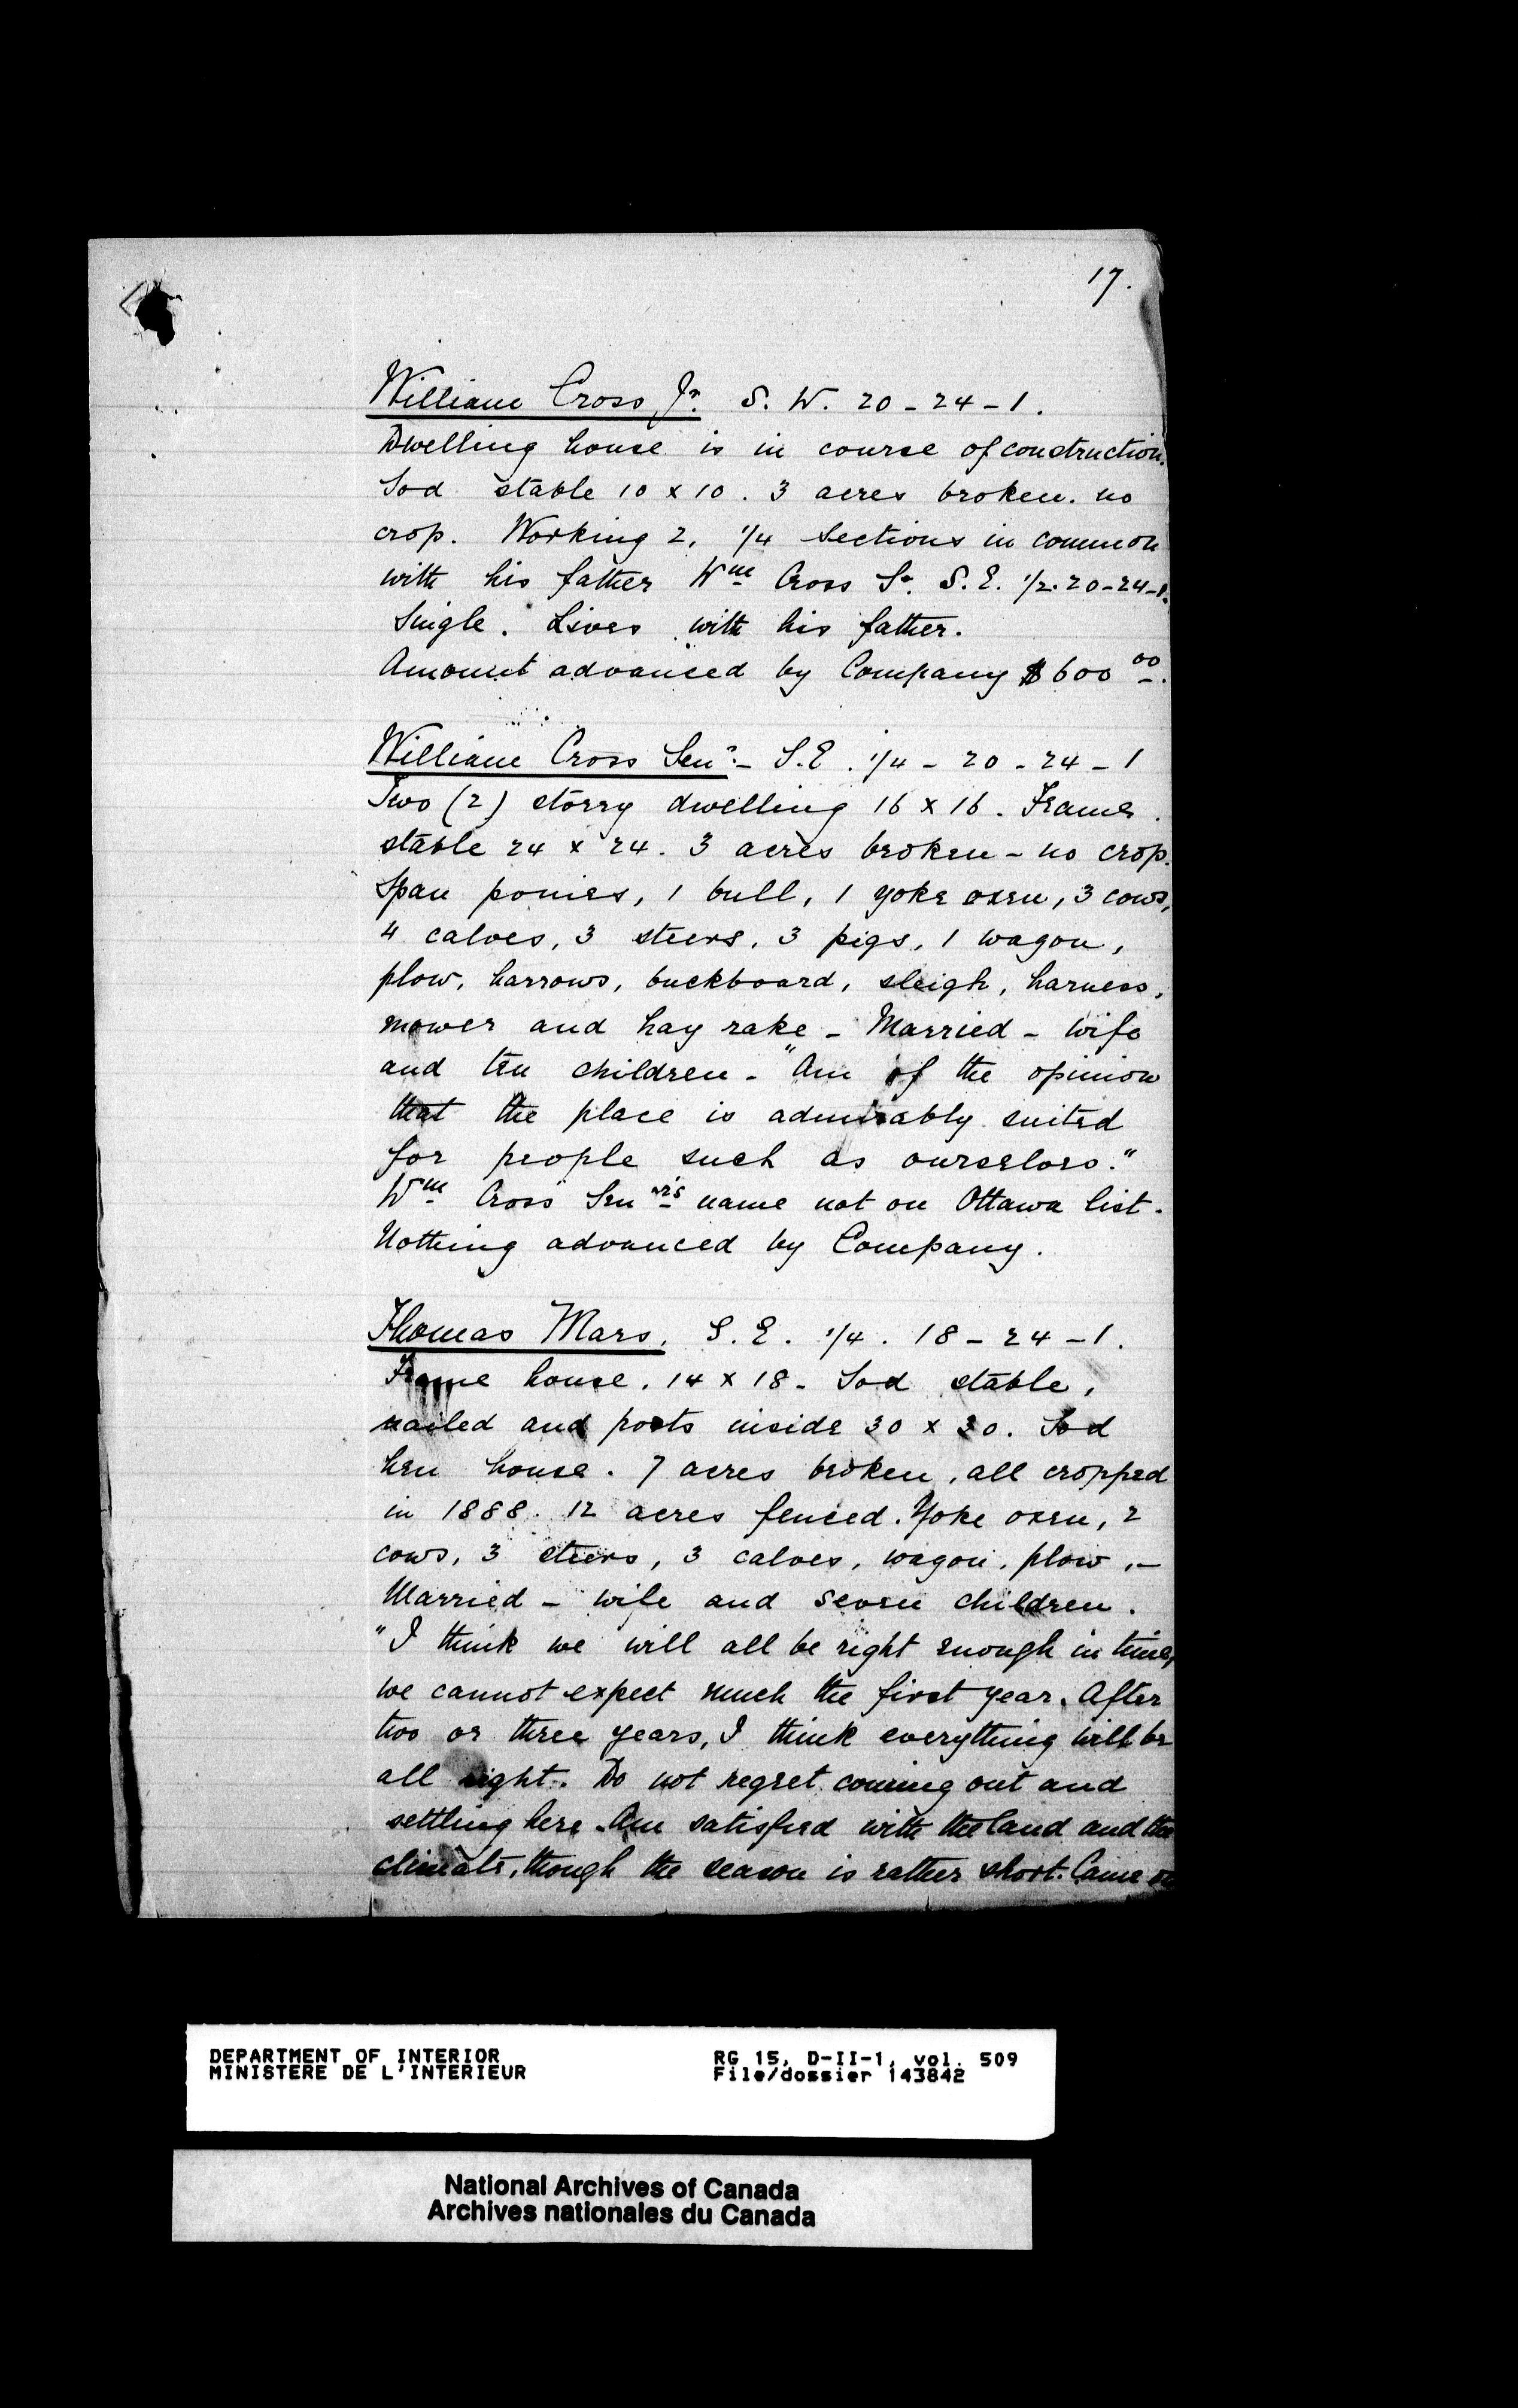 17.
William Cross Jr. S. W. 20-24-1.
Dwelling house is in course of construction.
Sod stable 10 x 10. 3 acres broken. no
crop. Working 2, 1/4 sections in common
with his father Wm Cross Sr. S. E. 1/2. 20-24-1.
Single. Lives with his father.
Amount advanced by Company $600 00.
William Cross Senr. - S.E. 1/4 - 20 - 24 - 1
Two (2) storry dwelling 16 x 16. Frame.
stable 24 x 24. 3 acres broken - no crop.
Span ponies, 1 bull, 1 yoke oxen, 3 cows,
4 calves, 3 steers, 3 pigs, 1 wagon,
plow, harrows, buckboard, sleigh, harness,
mower and hay rake - Married - wife
and ten children - "Am of the opinion
that the place is admirably suited
for people such as ourselves."
Wm Cross Senr's name not on Ottawa list.
Nothing advanced by Company.
Thomas Mars, S. E. 1/4. 18 - 24 - 1.
Frame house, 14 x 18 - Sod stable,
nailed and posts inside 30 x 30. Sod
hen house. 7 acres broken, all cropped
in 1888. 12 acres fenced. Yoke oxen, 2
cows, 3 steers, 3 calves, wagon, plow, -
Married - wife and seven children.
"I think we will all be right enough in time,
we cannot expect much the first year. After
two or three years, I think everything will be
all right. Do not regret coming out and
settling here. Am satisfied with the land and the
climate, though the season is rather short. Came
DEPARTMENT OF INTERIOR
MINISTERE DE L'INTERIEUR
RG 15, D-II-1, vol. 509
File/dossier 143842
National Archives of Canada
Archives nationales du Canada